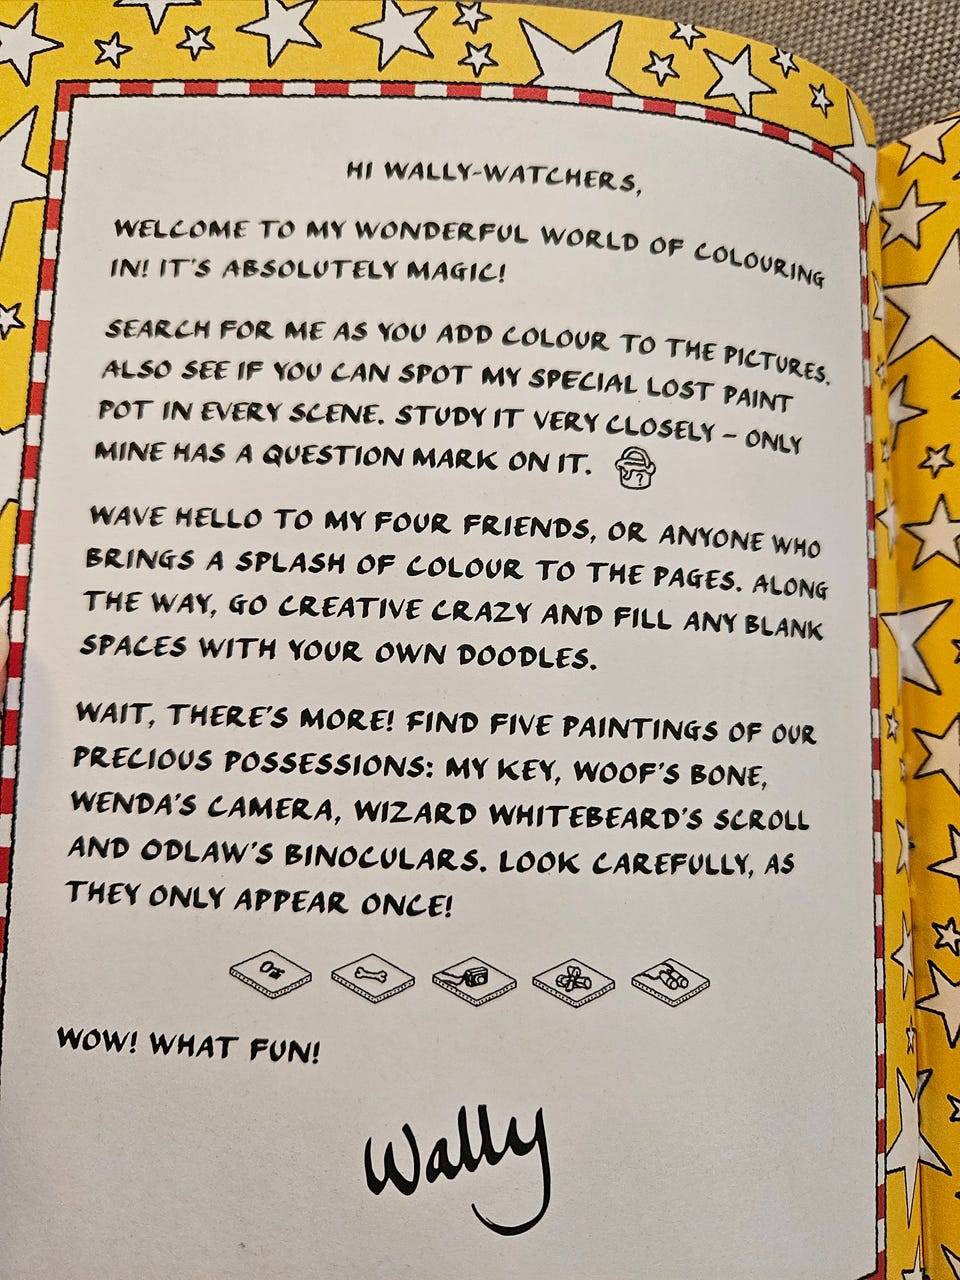 HI WALLY-WATCHERS,
WELCOME TO MY WONDERFUL WORLD OF COLOURING
IN! IT'S ABSOLUTELY MAGIC!
SEARCH FOR ME AS YOU ADD COLOUR TO THE PICTURES.
ALSO SEE IF YOU CAN SPOT MY SPECIAL LOST PAINT
POT IN EVERY SCENE. STUDY IT VERY CLOSELY – ONLY
MINE HAS A QUESTION MARK ON IT.
?
WAVE HELLO TO MY FOUR FRIENDS, OR ANYONE WHO
BRINGS A SPLASH OF COLOUR TO THE PAGES. ALONG
THE WAY, GO CREATIVE CRAZY AND FILL ANY BLANK
SPACES WITH YOUR OWN DOODLES.
WAIT, THERE'S MORE! FIND FIVE PAINTINGS OF OUR
PRECIOUS POSSESSIONS: MY KEY, WOOF'S BONE,
WENDA'S CAMERA, WIZARD WHITEBEARD'S SCROLL
AND ODLAW'S BINOCULARS. LOOK CAREFULLY, AS
THEY ONLY APPEAR ONCE!
WOW! WHAT FUN!
Wally